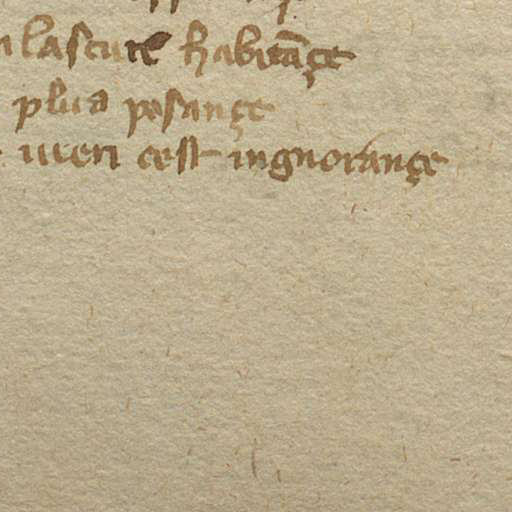 lascure habitāçe
plua pesançe
uren cest ingnorançe